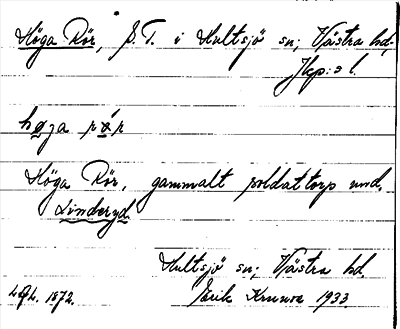 Höga Rör, S.T. i Hultsjö sn; Västra hd.
Jkp:s l.
høga rör
Höga Rör, gammalt soldattorp und.
Linderyd.
Hultsjö sn; Västra hd.
1872. Erik 1933